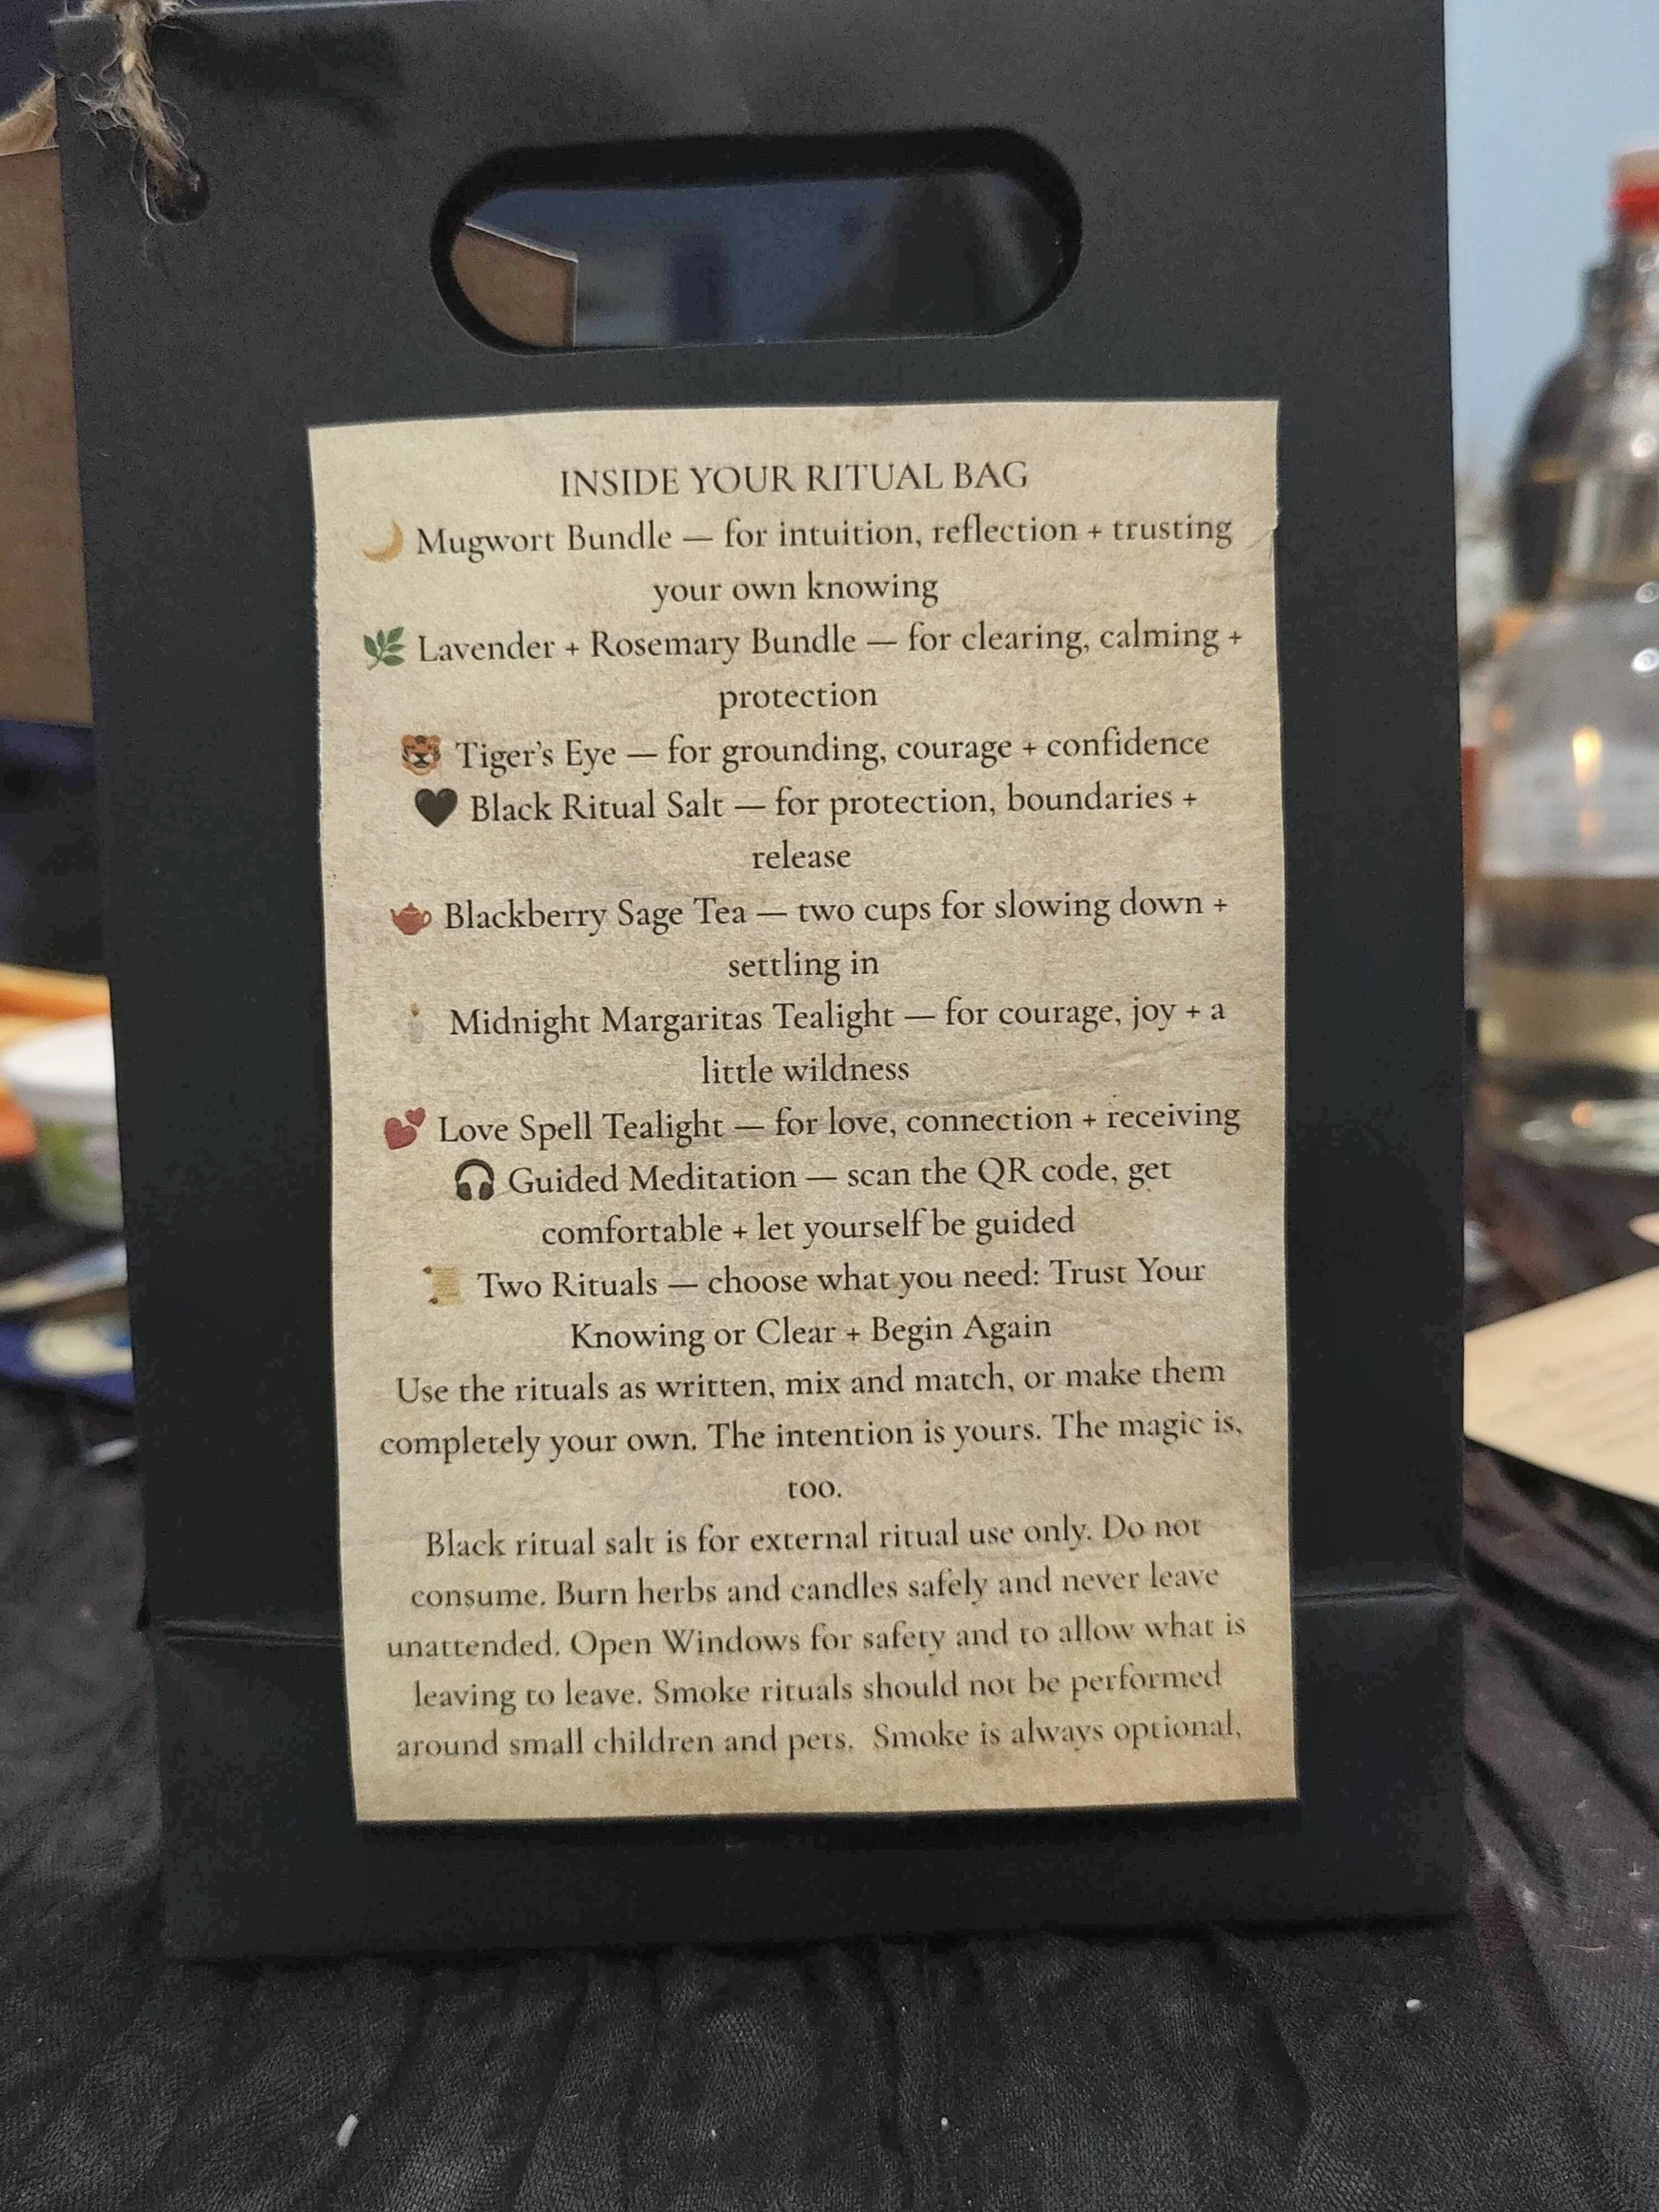 INSIDE YOUR RITUAL BAG
🌙 Mugwort Bundle — for intuition, reflection + trusting
your own knowing
🌿 Lavender + Rosemary Bundle — for clearing, calming +
protection
🐯 Tiger's Eye — for grounding, courage + confidence
🖤 Black Ritual Salt — for protection, boundaries +
release
🫖 Blackberry Sage Tea — two cups for slowing down +
settling in
🕯 Midnight Margaritas Tealight — for courage, joy + a
little wildness
💕 Love Spell Tealight — for love, connection + receiving
🎧 Guided Meditation — scan the QR code, get
comfortable + let yourself be guided
📜 Two Rituals — choose what you need: Trust Your
Knowing or Clear + Begin Again
Use the rituals as written, mix and match, or make them
completely your own. The intention is yours. The magic is,
too.
Black ritual salt is for external ritual use only. Do not
consume. Burn herbs and candles safely and never leave
unattended. Open Windows for safety and to allow what is
leaving to leave. Smoke rituals should not be performed
around small children and pets. Smoke is always optional,